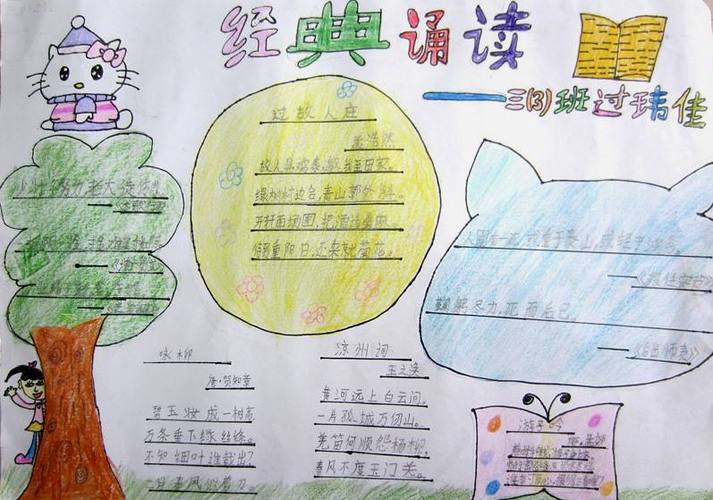 经典诵读
——三(3)班过玮佳
过故人庄
孟浩然
故人具鸡黍,邀我至田家。
绿树村边合,青山郭外斜。
开轩面场圃,把酒话桑麻。
待到重阳日,还来就菊花。
少壮不努力,老大徒伤悲。
人固有一死,或重于泰山,或轻于鸿毛。
——《报任安书》
鞠躬尽力,死而后已。
——《出师表》
咏柳
唐·贺知章
碧玉妆成一树高,
万条垂下绿丝绦。
不知细叶谁裁出?
二月春风似剪刀。
凉州词
王之涣
黄河远上白云间,
一片孤城万仞山。
羌笛何顺怨杨柳,
春风不度玉门关。
游子吟
唐·孟郊